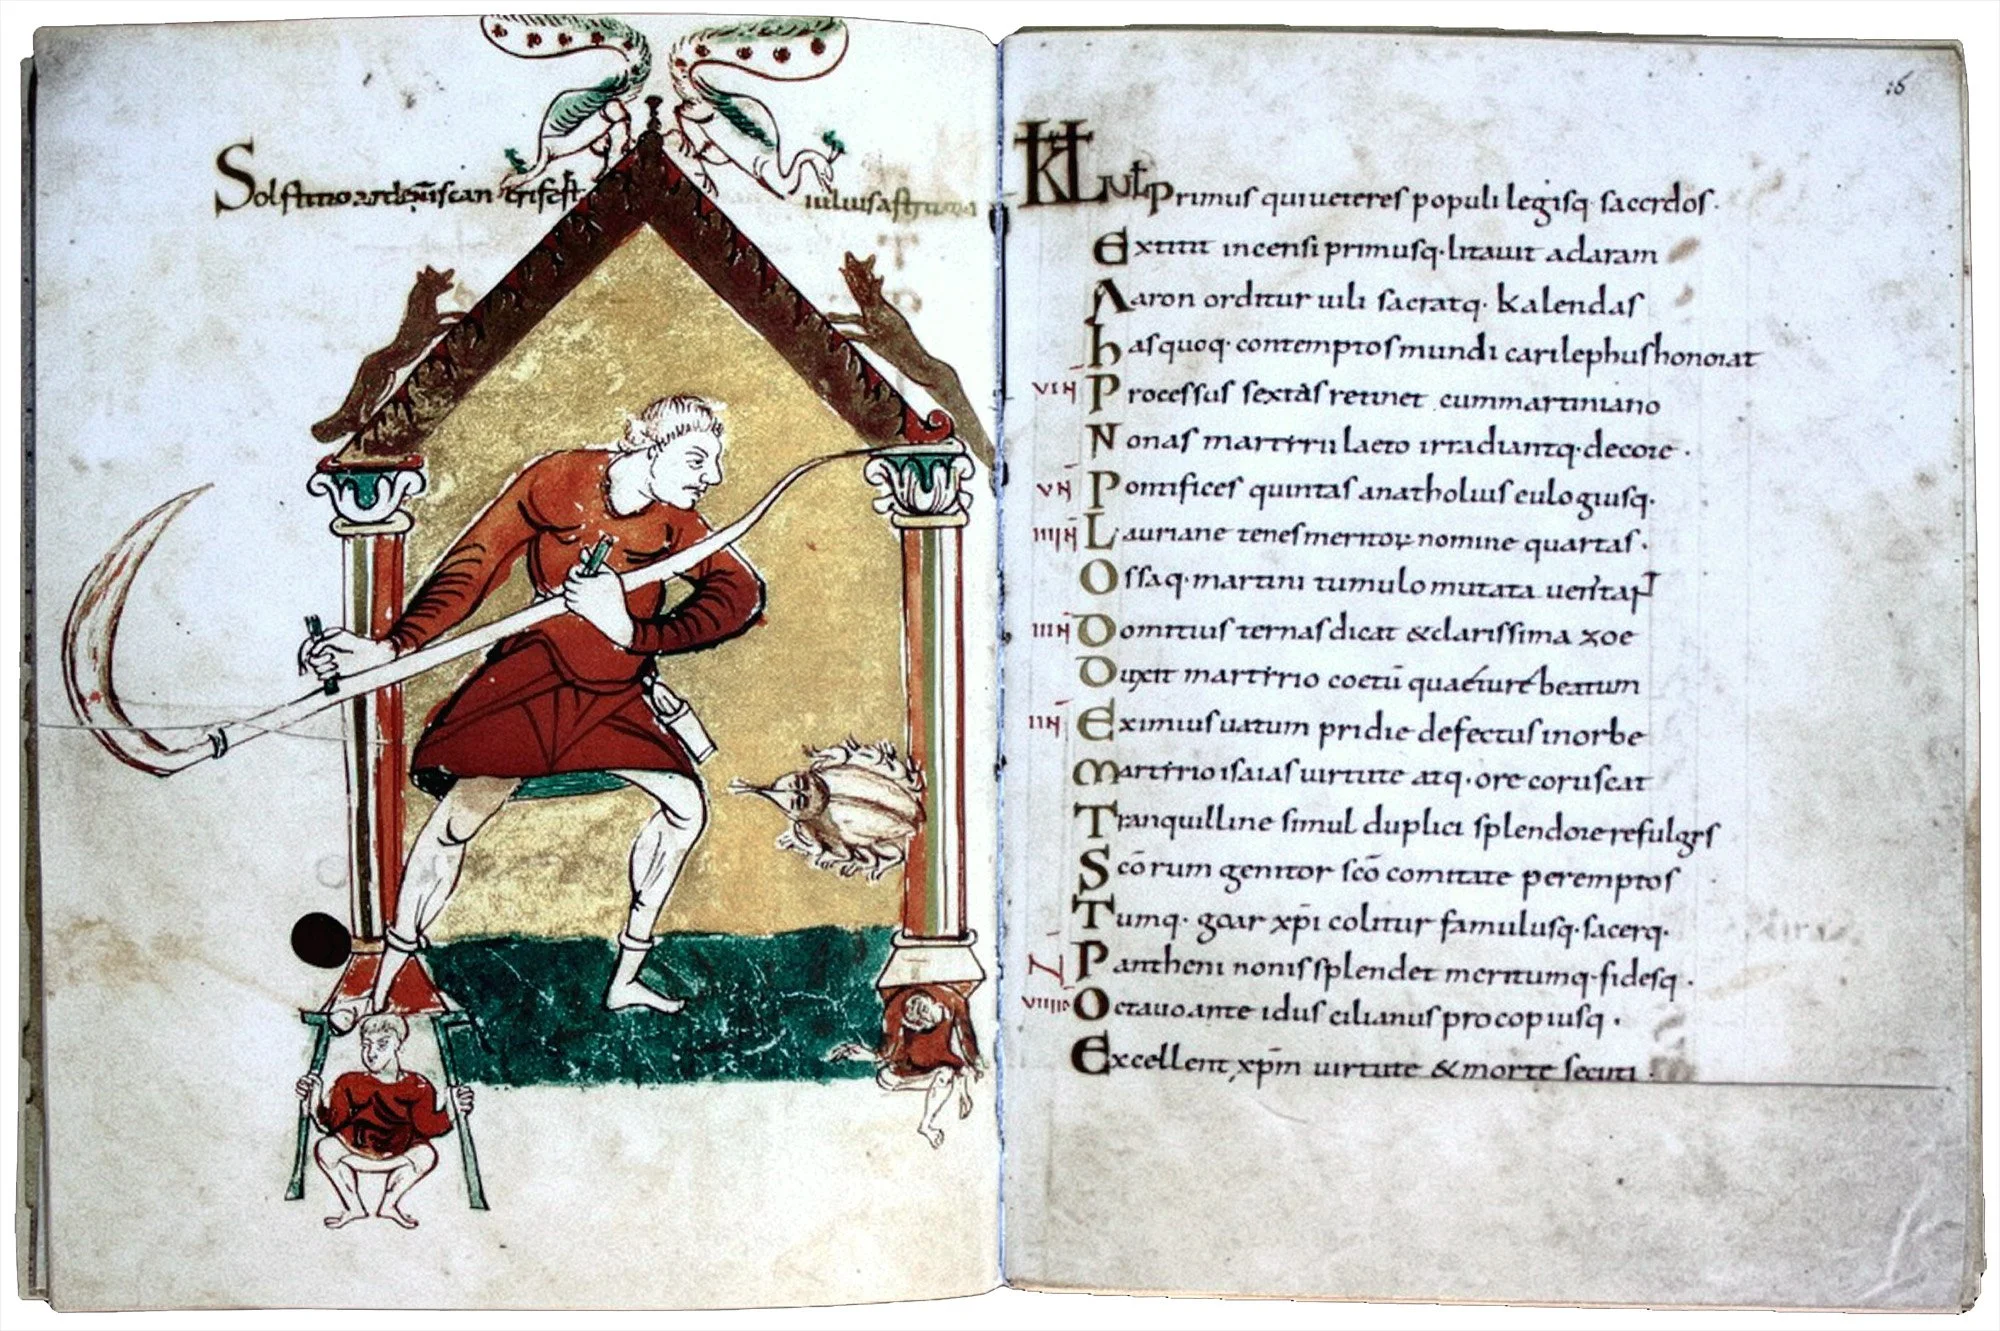 Solstitio ardentis cancri fert iulius astrum
16
KL Iul Primus qui veteres populi legisq. sacerdos.
Extitit incensi primusq. litauit ad aram
Aaron orditur iuli sacratq. kalendas
hasquoq. contemptos mundi carilephus honorat
VI N Processus sextas retinet cum martiniano
Nonas martirii laeto irradiantq. decore.
V N Pontifices quintas anatholius eulogiusq.
IIII N Lauriane tenes meritor nomine quartas.
Ossaq. martini tumulo mutata
III N Domitius ternas dicat & clarissima zoe
Duxit martirio coetū beatum
II N Eximius uatum pridie defectus in orbe
Martirio isaias uirtute atq. ore coruscat
Tranquilline simul duplici splendore refulges
Scōrum genitor scō comitate peremptos
Tumq. goar xp̄i colitur famulusq. sacerq.
N Pantheni nonis splendet meritumq. fidesq.
VIII ID Octauo ante idus cilianus procopiusq.
Excellent xp̄m uirtute & morte secuti.